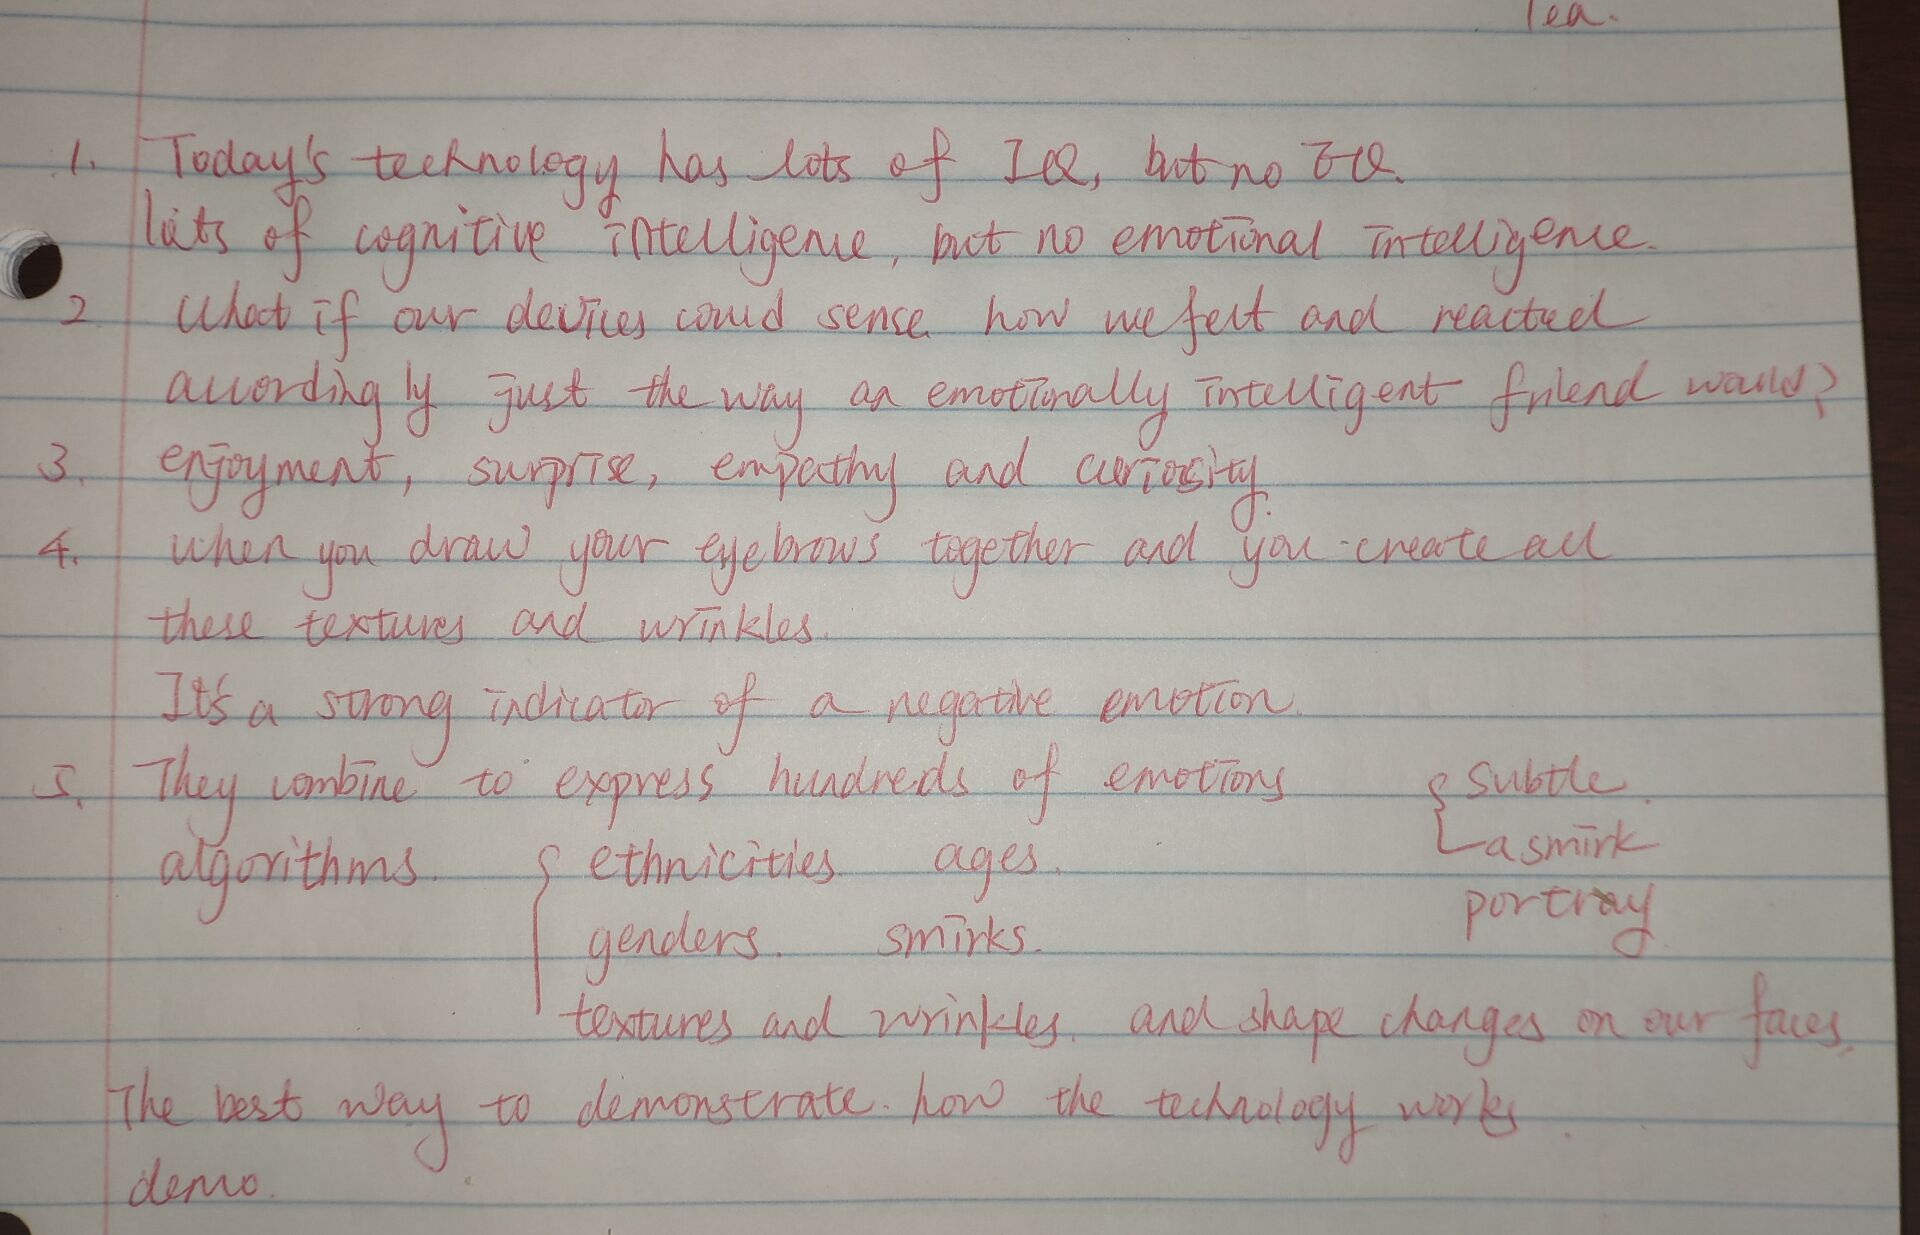 Tea.
1. Today's technology has lots of IQ, but no EQ.
lots of cognitive intelligence, but no emotional intelligence.
2 What if our devices could sense how we felt and reacted
accordingly just the way an emotionally intelligent friend would?
3. enjoyment, surprise, empathy and curiosity.
4. when you draw your eyebrows together and you create all
these textures and wrinkles.
It's a strong indicator of a negative emotion.
5. They combine to express hundreds of emotions
subtle.
a smirk
portray
algorithms. ethnicities. ages.
genders. smirks.
textures and wrinkles. and shape changes on our faces.
The best way to demonstrate how the technology works.
demo.